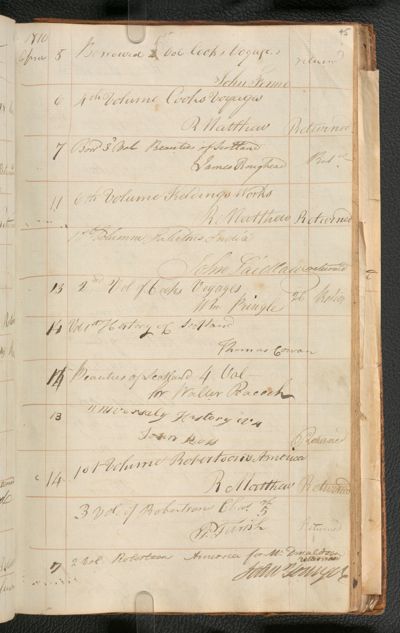 45
1810
5 Borrowed Vol Cooks Voyages returnd
6 4th Volume Cooks Voyages
R Matthew Returned
7 Bord 3d Vol Beauties of Scotland
James Roughead Retd
11 6th Volume Fieldings Works
R. Matthew Returned
India
John Laidlaw returned
13 2nd Vol of Cooks Voyages
Wm Pringle 26
Vol 1st History of Scotland
Thomas Cowan
14 Beauties of Scotland 4 Vol
for Walter Peacock
13 History
John Returned
14 1st Volume Robertson's America
R Matthew Returned
3 Vol. of Robertson Chas 5
P. Parish Returned
7 2 Vol Robertson America for Mr Donaldson
returned
John Younger